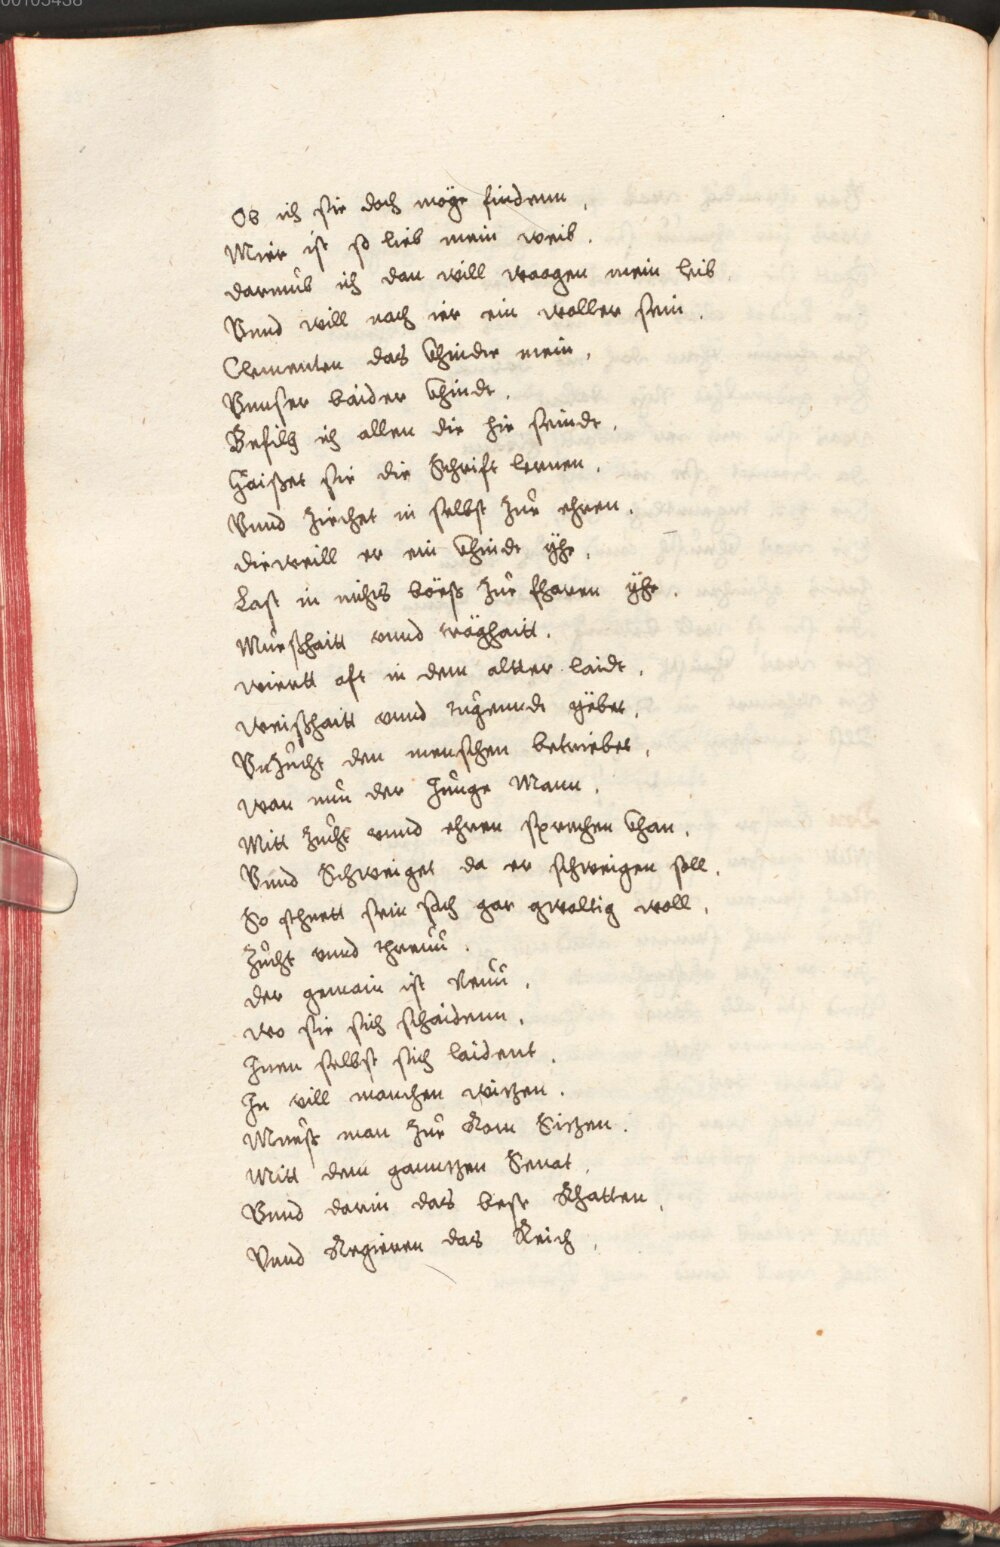 00105438
Ob ich sie doch möge findenn,
Mier ist so lieb mein weib.
darumb ich dan will waagen mein leib.
Vnnd will nach ier ein waller sein.
Clementen das khinde mein,
Vnnser baider khindt.
Befilch ich allen die hie seindt.
Haisset sie die Schrifft lernen.
Vnnd ziechet in selbst zur ehren.
dieweill er ein khindt ÿhe.
Last in nichts böess zur fharen ÿhe.
Muesshaitt vnnd träghaitt.
wiertt offt in dem altter laidt.
weisshaitt vnnd tugenndt gÿbet,
Vnzucht den menschen betriebet,
wan nun der Junge Mann.
Mitt zucht vnnd ehren sprechen khan.
Vnnd Schweiget da er schweigen soll.
So sthett sein sach gar gwaltig woll,
zucht vnnd threuu.
der gemain ist Neuu,
wo sie sich schaidenn,
Jnen selbst sich laident.
In vill manchen witzen.
Muess man zue Rom Sitzen.
Mitt dem ganntzen Senat,
Vnnd darin das beste Rhatten,
Vnnd Regieren das Reich,